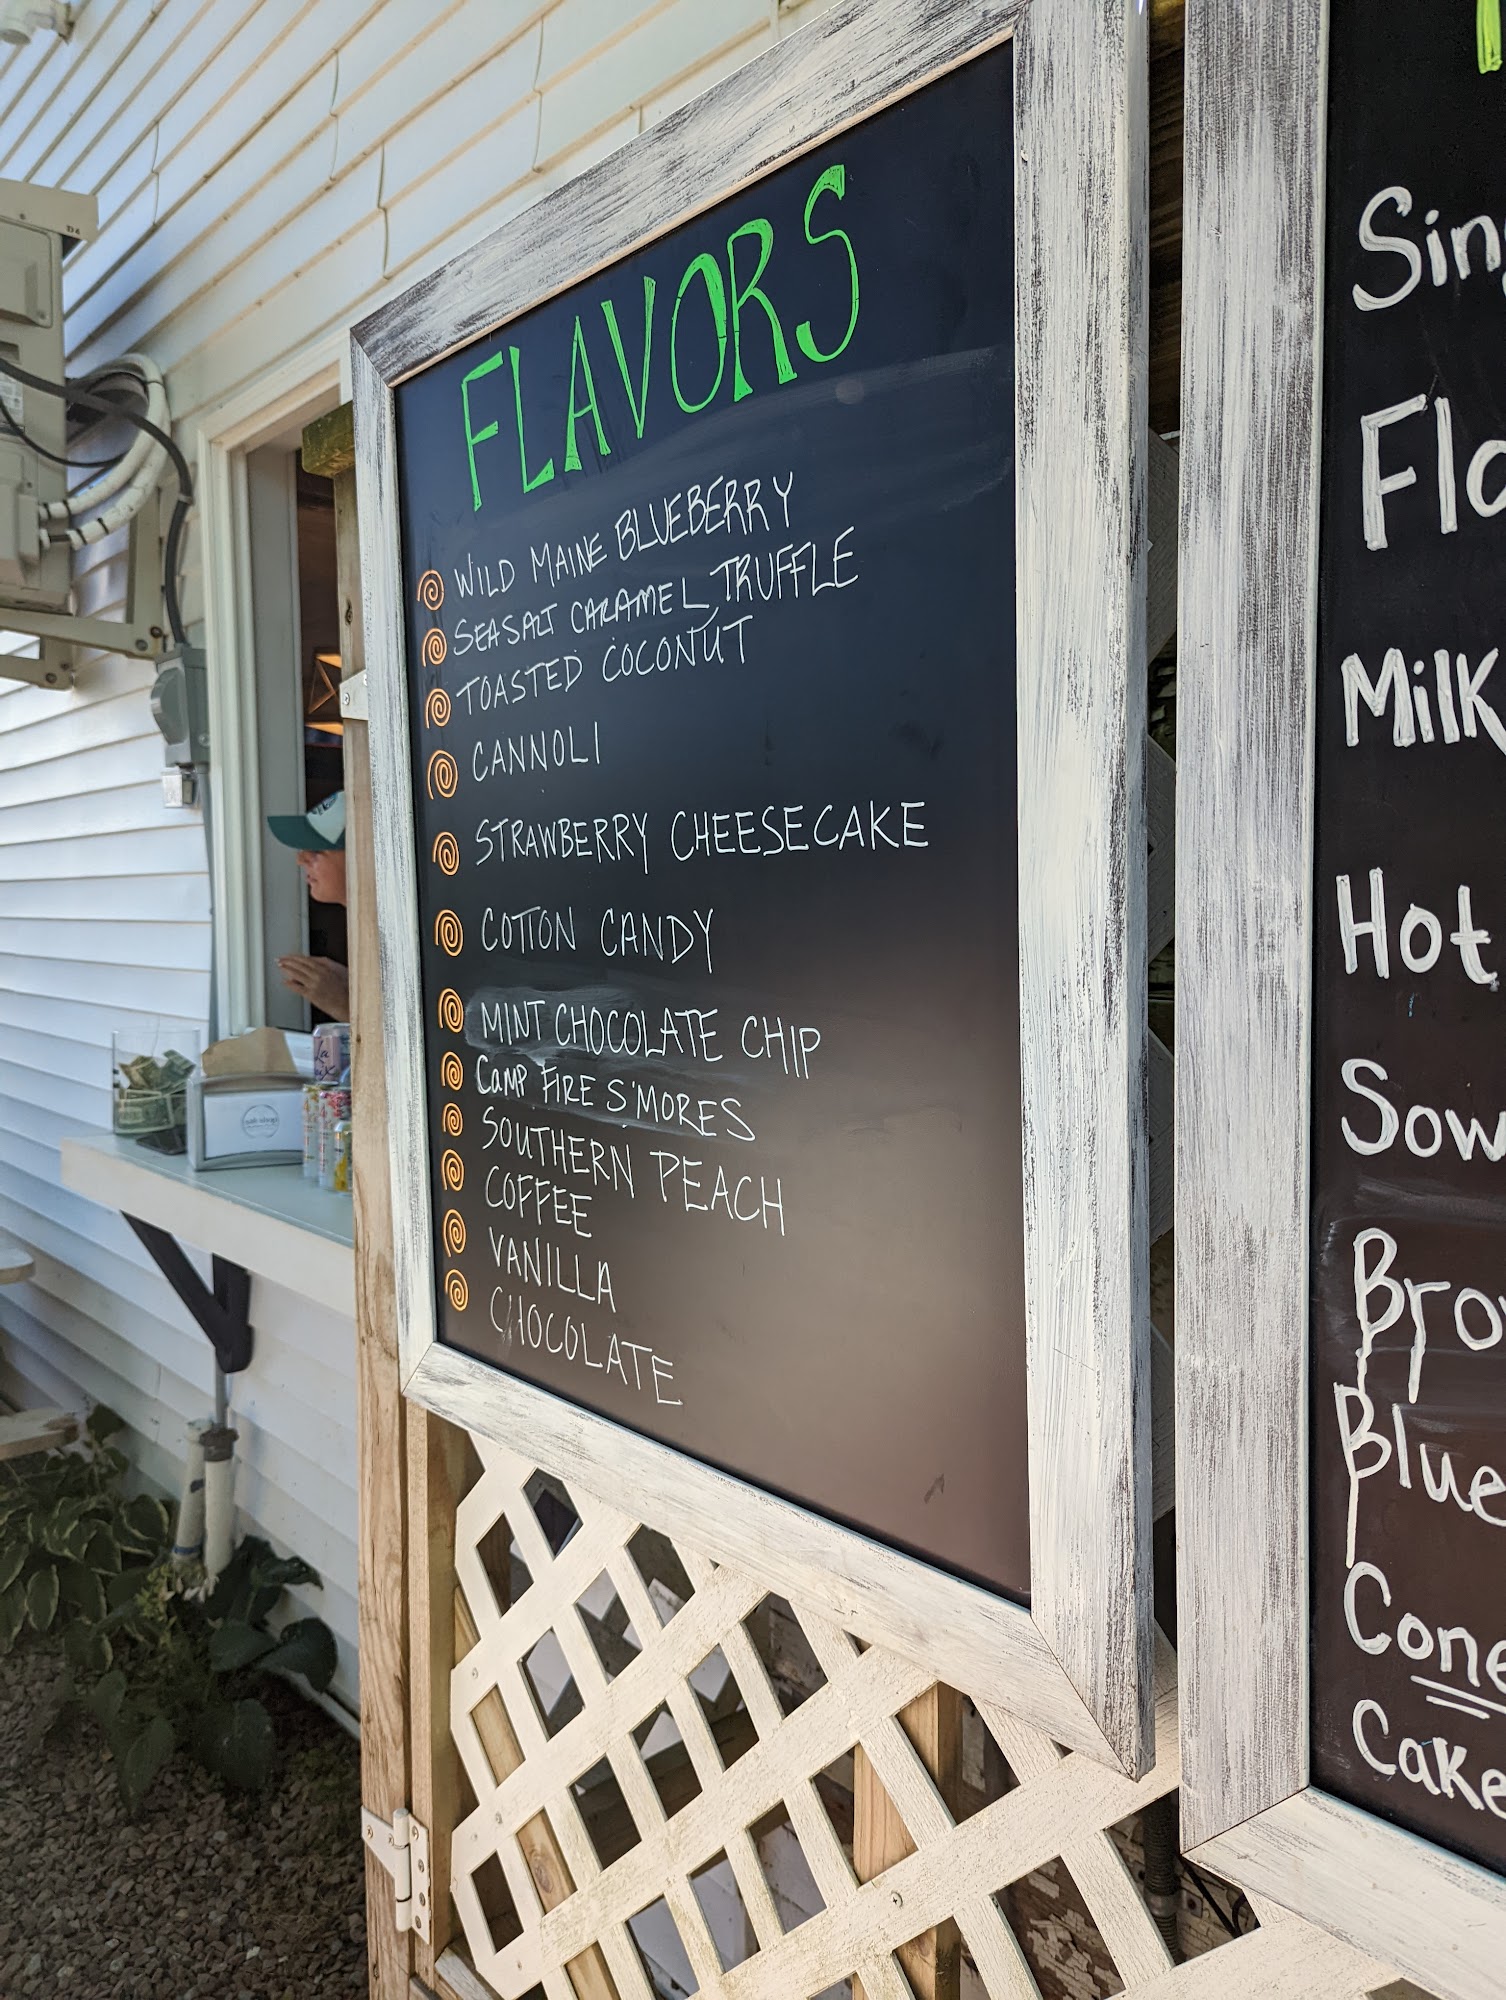 FLAVORS
WILD MAINE BLUEBERRY
SEASALT CARAMEL TRUFFLE
TOASTED COCONUT
CANNOLI
STRAWBERRY CHEESECAKE
COTTON CANDY
MINT CHOCOLATE CHIP
CAMP FIRE S'MORES
SOUTHERN PEACH
COFFEE
VANILLA
CHOCOLATE
Sing
Flo
Milk
Hot
Sow
Bro
Blue
Cone
Cake